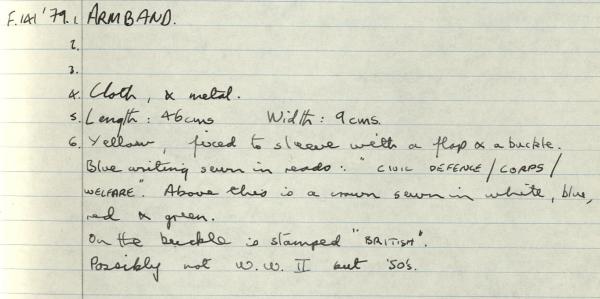 F.141'79.1 ARMBAND.
2.
3.
4. Cloth, & metal.
5. Length: 46cms Width: 9cms.
6. Yellow, fixed to sleeve with a flap & a buckle.
Blue writing sewn in reads: "CIVIL DEFENCE/CORPS/
WELFARE". Above this is a crown sewn in white, blue,
red & green.
On the buckle is stamped "BRITISH".
Possibly not W.W. II but '50's.